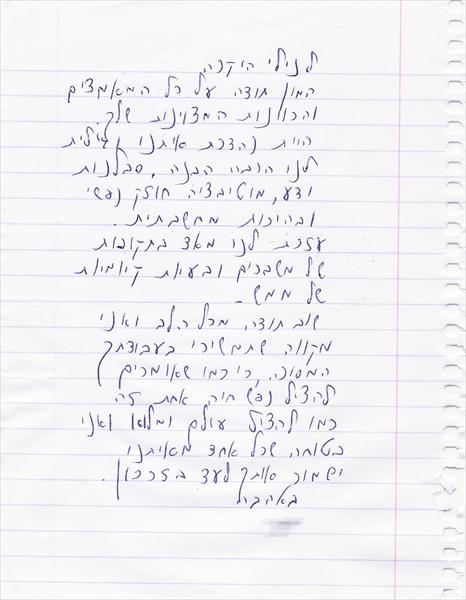 לנילי היקרה
המון תודה על כל המאמצים
והכוונות המצוינות שלך.
היית נהדרת איתנו וגילית
לנו הרבה הבנה, סבלנות
ודע, מוטיבציה חוזק נפשי
ובהירות מחשבתית.
עזרת לנו מאד בתקופות
של משברים ובעיות קיומיות
של ממש -
שוב תודה, מכל הלב ואני
מקווה שתמשיכי בעבודתך
המסורה, כי כמו שאומרים
להציל נפש חיה אחת זה
כמו להציל עולם ומלואו ואני
בטוחה שכל אחד מאיתנו
ישמור אותך לעד בזכרון.
באהבה